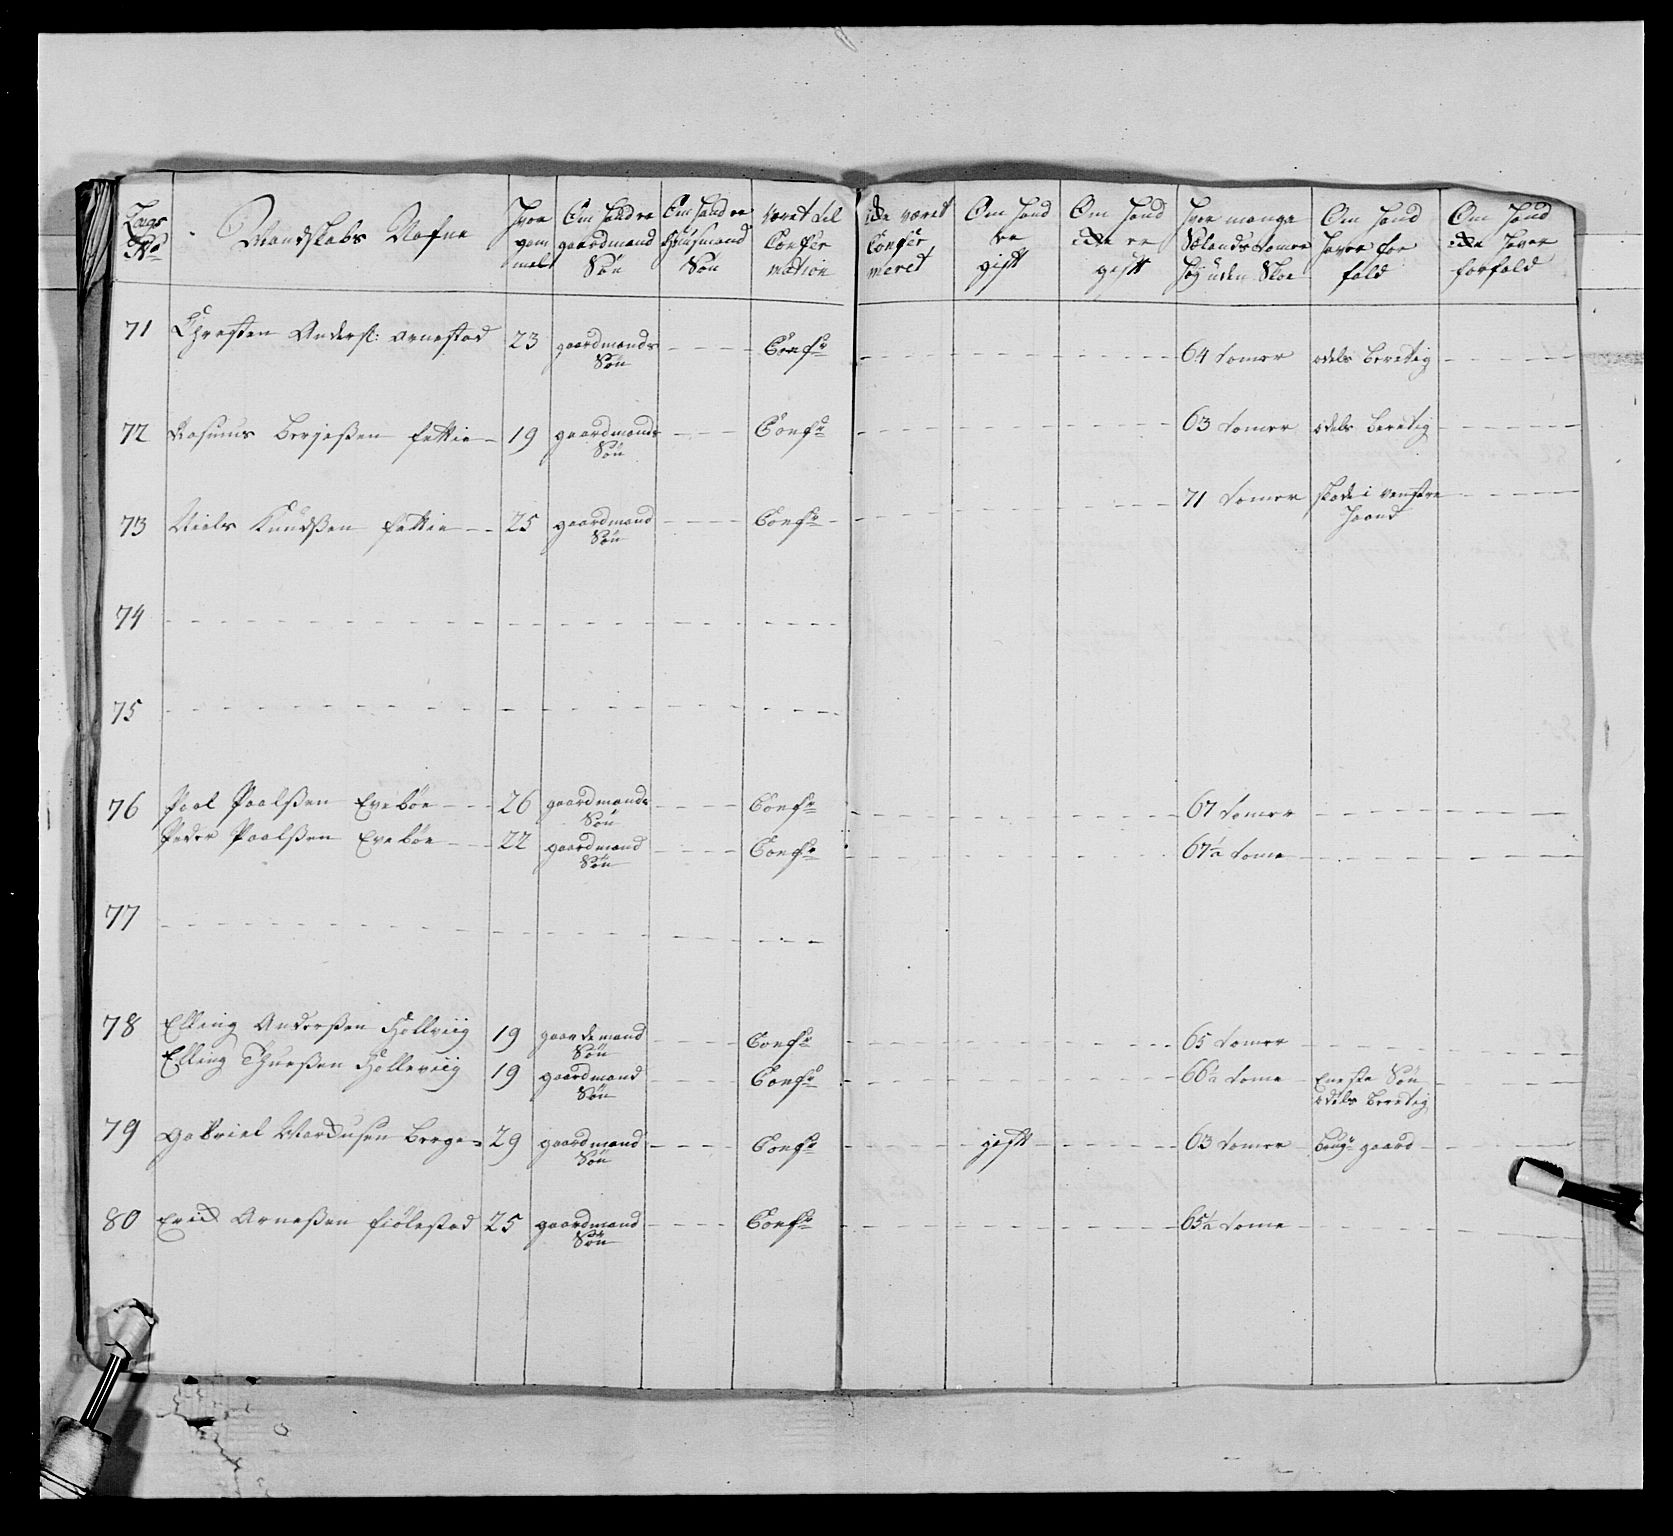 Laugs No
Mandskabs Nafne
Hvor gam mel
Om hand er gaardmand Søn
Om hand er Huusmand Søn
Været til Confir mation
ikke været Confir meret
Om hand er gift
Om hand ikke er gift
Hvor mange Sælands tomer høj uden Skoe
Om hand haver for fald
Om hand ikke haver forfald
71 Christen Anders: Arnestad 23 gaardmands Søn - - - Confr - - - 64 tomer odels beretig - - -
72 Rasmus Berjeßen fettie - 19 gaardmands Søn - - - Confr - - - 63 tomer odels beretig - - -
73 Niels Knudßen fettie - - 25 gaardmand Søn - - - Confr - - - 71 tomer skade i venstre Haand - - -
74 - - -
75 - - -
76 Poel Poelßen Evebøe - - - 26 gaardmands Søn - - - Confr - - - 67 tomer - - -
Peder Poelßen Evebøe - - - 22 gaardmand Søn - - - Confr - - - 67½ tome - - -
77 - - -
78 Elling Anderßen Hollviig 19 gaardemand Søn - - - Confr - - - 65 tomer - - -
Elling Thueßen Holleviig 19 gaardmand Søn - - - Confr - - - 66½ tome Eneste Søn odels beretig - - -
79 Gabriel Markusen Berge - 29 gaardmand Søn - - - Confr - - - gift - - - 63 tomer - gaard - - -
80 Erick Arneßen fiølestad 25 gaardmand Søn - - - Confr - - - 65½ tome - - -